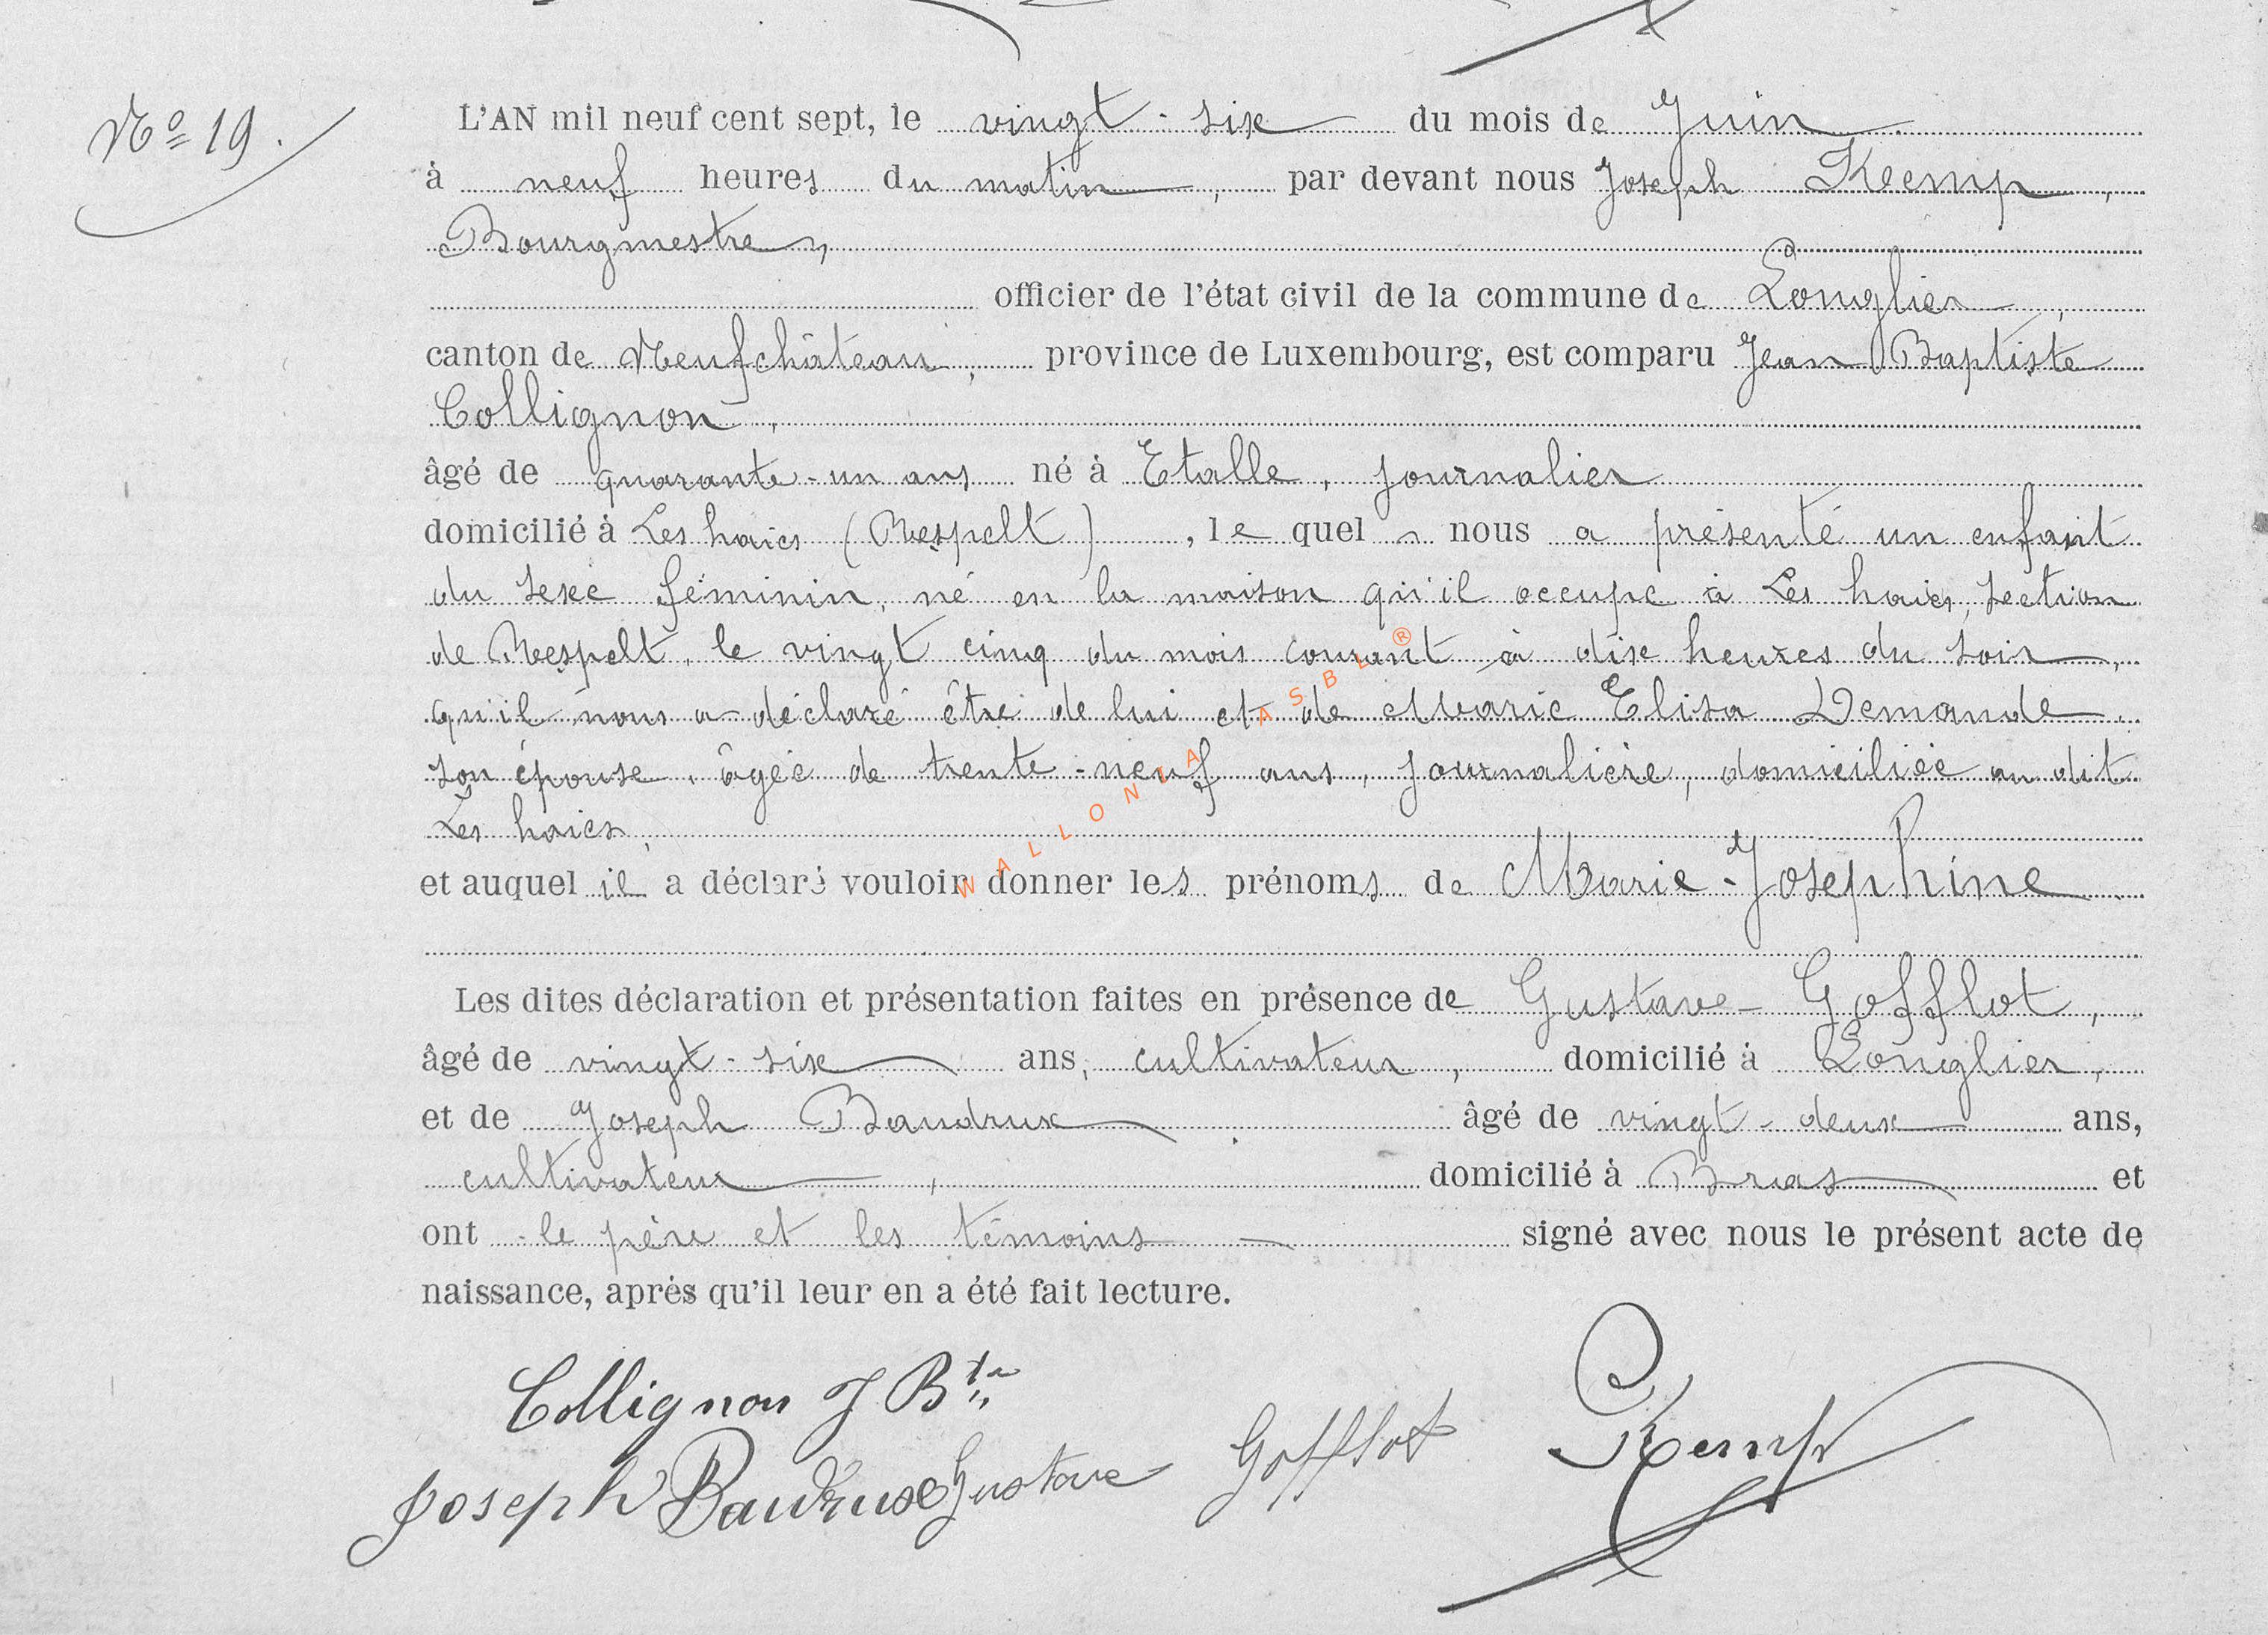 Nº 19.
L'AN mil neuf cent sept, le vingt-six du mois de Juin
à neuf heures du matin, par devant nous Joseph Kemp,
Bourgmestre,
officier de l'état civil de la commune de Longlier,
canton de Neufchâteau, province de Luxembourg, est comparu Jean Baptiste
Collignon,
âgé de quarante-un ans né à Etalle, journalier
domicilié à Les haies (Respelt), le quel nous a présenté un enfant
du sexe féminin, né en la maison qu'il occupe à Les haies, section
de Respelt, le vingt cinq du mois courant à dix heures du soir,
qu'il nous a déclaré être de lui et de Marie Elisa Demande,
son épouse, âgée de trente-neuf ans, journalière, domiciliée au dit
Les haies,
et auquel il a déclaré vouloir donner les prénoms de Marie-Josephine
Les dites déclaration et présentation faites en présence de Gustave Gofflot,
âgé de vingt-six ans, cultivateur, domicilié à Longlier,
et de Joseph Baudrux âgé de vingt-deux ans,
cultivateur, domicilié à Bras et
ont le père et les témoins signé avec nous le présent acte de
naissance, après qu'il leur en a été fait lecture.
Collignon J Bte
Joseph Baudrux Gustave Gofflot Kemp
WALLONIA ASBL ®